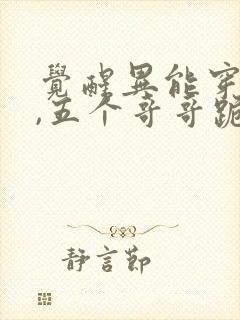 覺醒異能穿
,五个哥哥跪
静言節